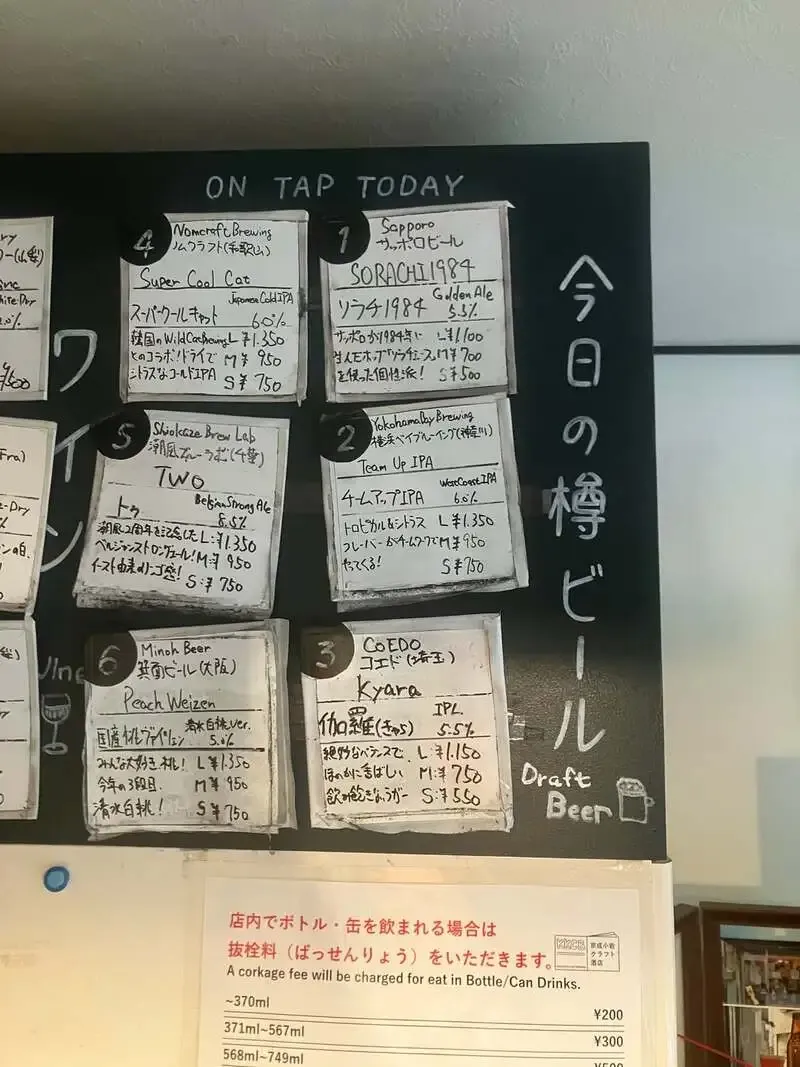 ON TAP TODAY
今日の樽ビール
Draft
Beer
1
Sapporo
サッポロビール
SORACHI1984
Golden Ale
ソラチ1984
5.5%
サッポロが1984年に
生んだホップ「ソラチエース」
を使った個性派!
L:¥1.100
M:¥700
S:¥500
2
Yokohama Bay Brewing
横浜ベイブルーイング(神奈川)
Team Up IPA
West Coast IPA
チームアップIPA
6.0%
トロピカル&シトラス
フレーバーがチームワークで
やってくる!
L:¥1.350
M:¥950
S:¥750
3
COEDO
コエド(埼玉)
Kyara
IPL
伽羅(きゃら)
5.5%
絶妙なバランスで、
ほのかに香ばしい
L:¥1.150
M:¥750
S:¥550
4
Nomcraft Brewing
ノムクラフト(和歌山)
Super Cool Cat
Japanese Cold IPA
スーパークールキャット
6.0%
韓国のWild Cat Brewing
とのコラボ!ドライで
シトラスなコールドIPA
L:¥1.350
M:¥950
S:¥750
5
Shiokaze Brew Lab
潮風ブルーラボ(千葉)
TWO
Belgian Strong Ale
トゥ
8.5%
潮風2周年を記念した
ベルジャンストロングエール!
イースト由来のリンゴ感!
L:¥1.350
M:¥950
S:¥750
6
Minoh Beer
箕面ビール(大阪)
Peach Weizen
清水白桃ver.
国産桃ヴァイツェン
5.0%
みんな大好き桃!
今年の3段目、
清水白桃!
L:¥1.350
M:¥950
S:¥750
ワイン
Wine
店内でボトル・缶を飲まれる場合は
抜栓料(ばっせんりょう)をいただきます。
A corkage fee will be charged for eat in Bottle/Can Drinks.
京成小岩
クラフト
酒店
~370ml
¥200
371ml~567ml
¥300
568ml~749ml